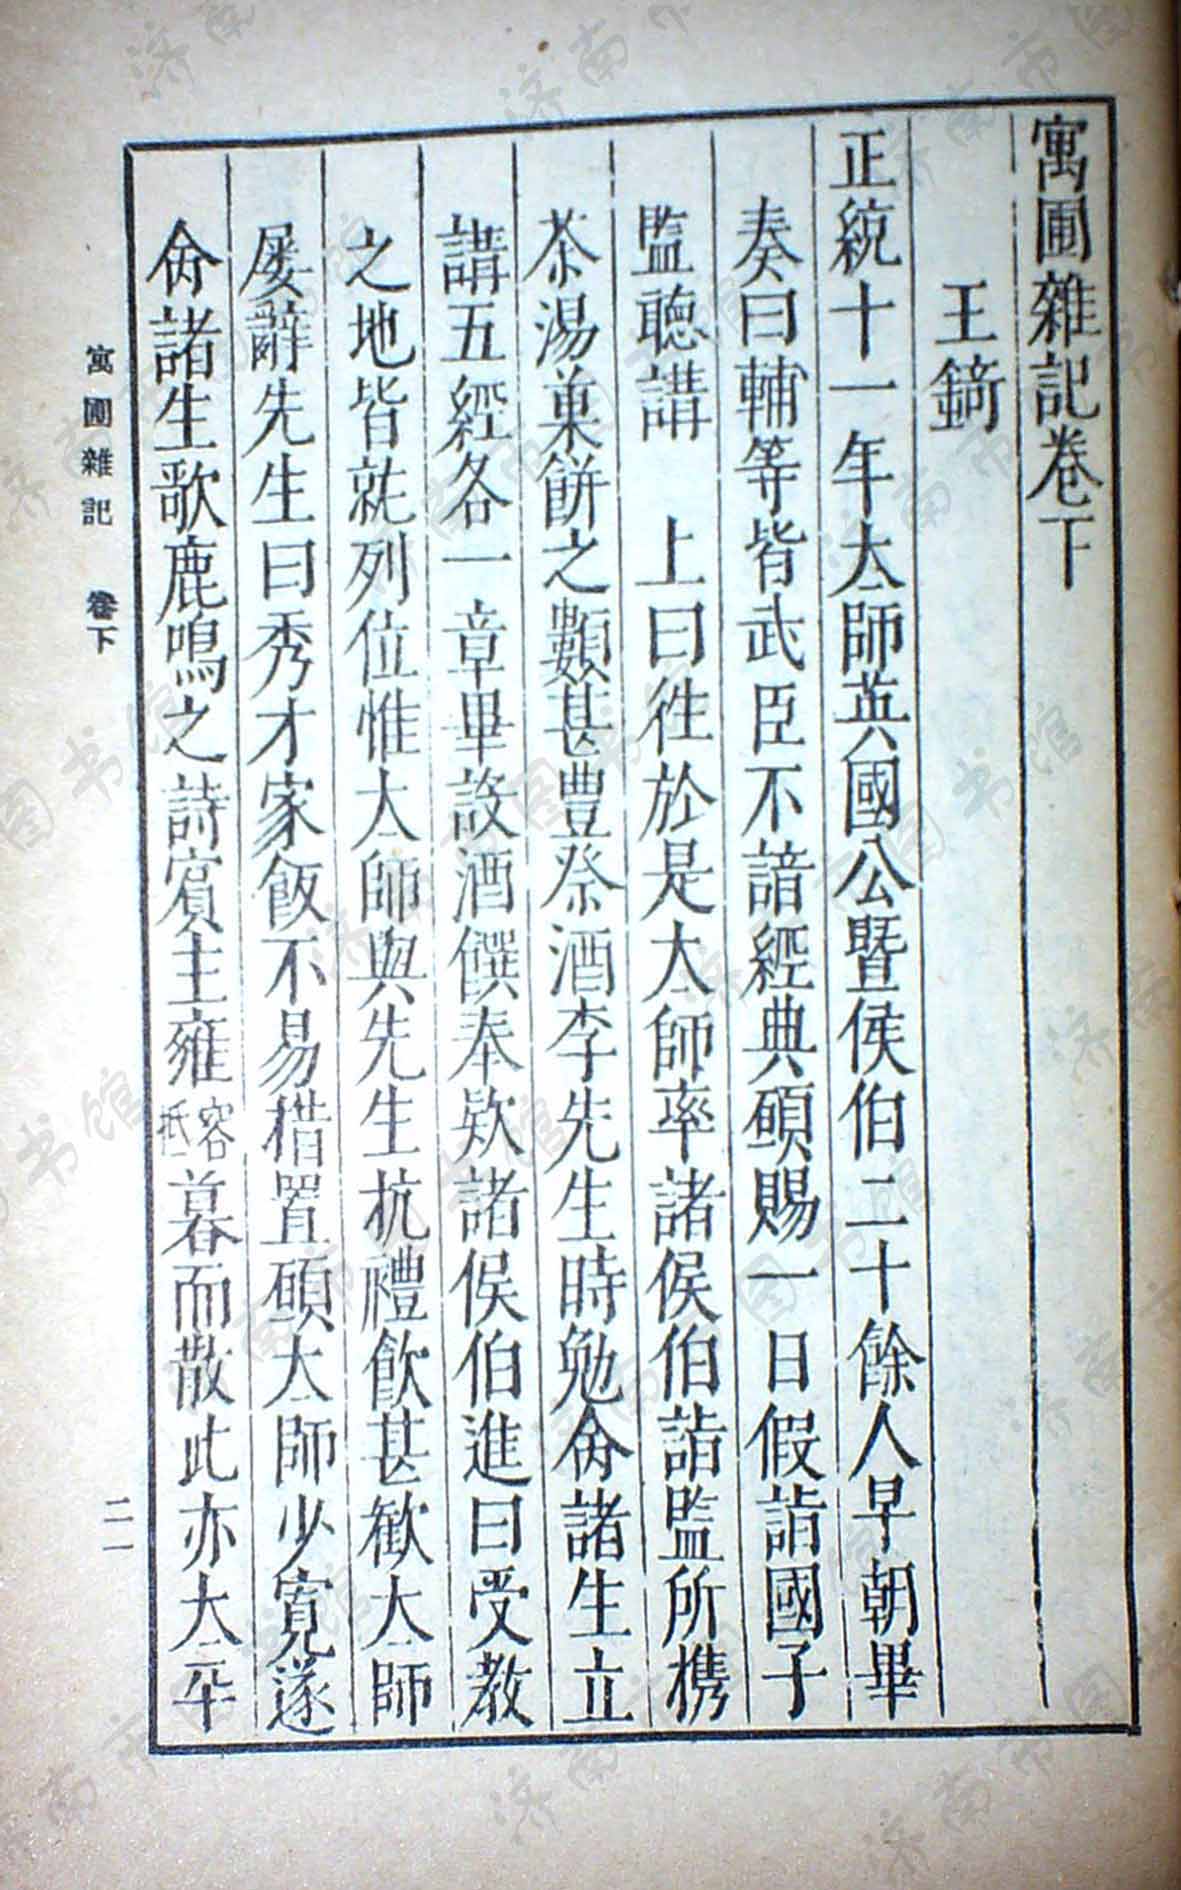 寓圃雜記卷下
王錡
正統十一年太師英國公暨侯伯二十餘人早朝畢
奏曰輔等皆武臣不諳經典碩賜一日假詣國子
監聽講　上曰徃於是太師率諸侯伯詣監所攜
茶湯菓餅之類甚豐祭酒李先生時勉命諸生立
講五經各一章畢設酒饌奉欵諸侯伯進曰受教
之地皆就列位惟太師與先生抗禮飲甚歡太師
屡辭先生曰秀才家飯不易措置碩太師少寬遂
命諸生歌鹿鳴之詩賓主雍容抵暮而散此亦太平
寓圃雜記　卷下
二一
济南市图书馆